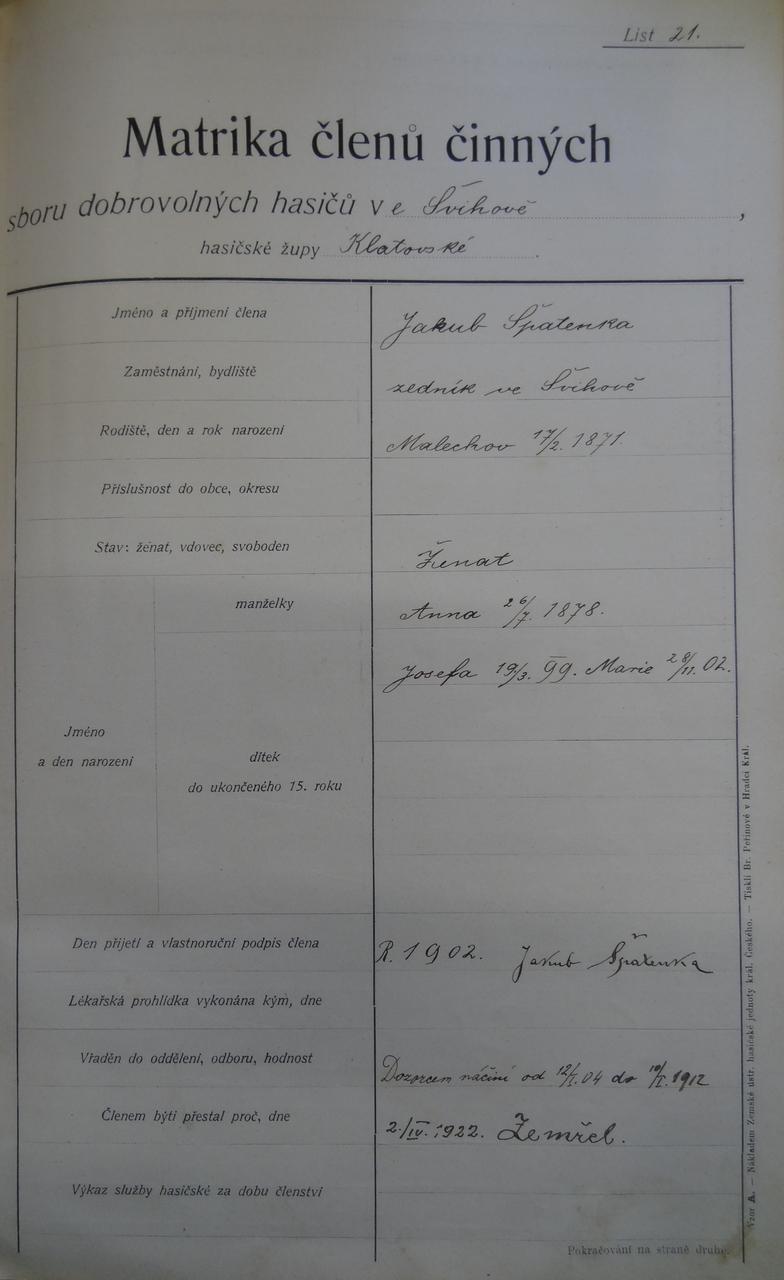 List 21.
Matrika členů činných
sboru dobrovolných hasičů ve Švihově,
hasičské župy Klatovské.
Jméno a příjmení člena Jakub Špatenka
Zaměstnání, bydliště zedník ve Švihově
Rodiště, den a rok narození Malechov 17/2. 1871.
Příslušnost do obce, okresu
Stav: ženat, vdovec, svoboden Ženat
manželky Anna 26/7. 1878.
Josefa 19/3. 99. Marie 28/11. 02.
Jméno
a den narození
dítek
do ukončeného 15. roku
Den přijetí a vlastnoruční podpis člena R. 1902. Jakub Špatenka
Lékařská prohlídka vykonána kým, dne
Vřaděn do oddělení, odboru, hodnost Dozorcem náčiní od 12/I. 04 do 10/I. 1912
Členem býti přestal proč, dne 2./IV. 1922. Zemřel.
Výkaz služby hasičské za dobu členství
Pokračování na straně druhé.
Vzor A. — Nákladem Zemské ústř. hasičské jednoty král. Českého. — Tiskli Br. Peřinové v Hradci Král.